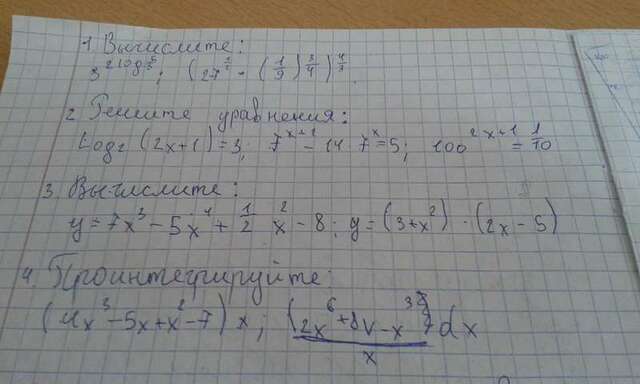 1. Вычислите:
3^{2log_3 6}; (27^{\frac{1}{2}} · (\frac{1}{9})^{\frac{3}{4}})^{\frac{4}{3}}
2. Решите уравнения:
Log_2 (2x+1)=3; 7^{x+1} - 14 · 7^x = 5; 100^{2x+1} = \frac{1}{10}
3. Вычислите:
y = 7x^3 - 5x^4 + \frac{1}{2} x^2 - 8; y = (3+x^2) · (2x - 5)
4. Проинтегрируйте:
(4x^3 - 5x + x^2 - 7) x;
dx
x